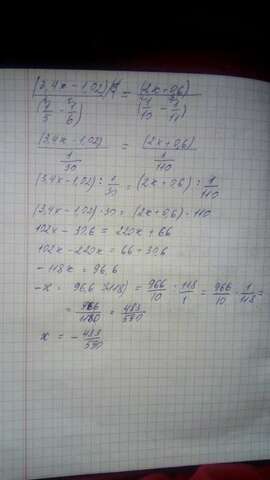 (3,4x-1,02) / (1/5 - 1/6) = (2x+0,6) / (1/10 - 1/11)
(3,4x-1,02) / (1/30) = (2x+0,6) / (1/110)
(3,4x-1,02) : 1/30 = (2x+0,6) : 1/110
(3,4x-1,02)·30 = (2x+0,6)·110
102x-30,6 = 220x+66
102x-220x = 66+30,6
-118x = 96,6
-x = 96,6 : 118) = 966/10 : 118/1 = 966/10 · 1/118 =
= 966/1180 = 483/590
x = -483/590